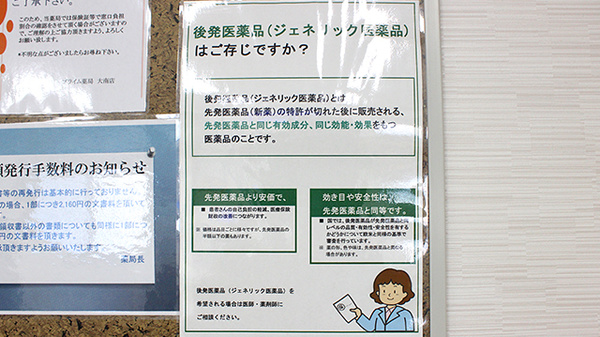 ご了承下さい。
このため、当薬局では保険証等で窓口負担
割合の確認をさせて頂く場合がございますの
で、ご理解の上ご協力頂きますよう、よろしく
お願い致します。
*不明な点がございましたらお尋ね下さい。
プライム薬局 大南店
額発行手数料のお知らせ
書等の再発行は基本的に行っておりません。
の場合、1部につき2,160円の文書料を頂いて
。
領収書以外の書類についても同様に1部につ
円の文書料を頂きます。
承頂きますようお願いいたします。
薬局長
後発医薬品(ジェネリック医薬品)
はご存じですか?
後発医薬品(ジェネリック医薬品)とは
先発医薬品(新薬)の特許が切れた後に販売される、
先発医薬品と同じ有効成分、同じ効能・効果をもつ
医薬品のことです。
先発医薬品より安価で、
■ 患者さんの自己負担の軽減、医療保険
財政の改善につながります。
※ 価格は品目ごとに様々ですが、先発医薬品の
半額以下の薬もあります。
効き目や安全性は、
先発医薬品と同等です。
■ 国では、後発医薬品が先発医薬品と同
レベルの品質・有効性・安全性を有する
かどうかについて欧米と同様の基準で
審査を行っています。
※ 薬の形、色や味は、先発医薬品と異なる
場合があります。
後発医薬品(ジェネリック医薬品)を
希望される場合は医師・薬剤師に
ご相談ください。